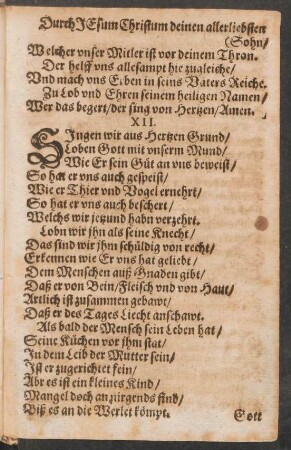 Durch JEsum Christum deinen allerliebsten
(Sohn/
Welcher vnser Mitler ist vor deinem Thron.
Der helff vns allesampt hie zugleiche/
Vnd mach vns Erben in seins Vaters Reiche.
Zu Lob vnd Ehren seinem heiligen Namen/
Wer das begert/der sing von Hertzen/Amen.
XII.
SIngen wir aus Hertzen Grund/
Loben Gott mit vnserm Mund/
Wie Er sein Güt an vns beweist/
So hat er vns auch gespeist/
Wie er Thier vnd Vogel ernehrt/
So hat er vns auch beschert/
Welchs wir jezund habn verzehrt.
Lobn wir jhn als seine Knecht/
Das sind wir jhm schüldig von recht/
Erkennen wie Er vns hat geliebt/
Dem Menschen auß Gnaden gibt/
Daß er von Bein/Fleisch vnd von Haut/
Artlich ist zusammen gebawt/
Daß er des Tages Liecht anschawt.
Als bald der Mensch sein Leben hat/
Seine Küchen vor jhm stat/
In dem Leib der Mutter sein/
Ist er zugerichtet fein/
Abr es ist ein kleines Kind/
Mangel doch an nirgends find/
Biß es an die Werlet kömpt.
Gott